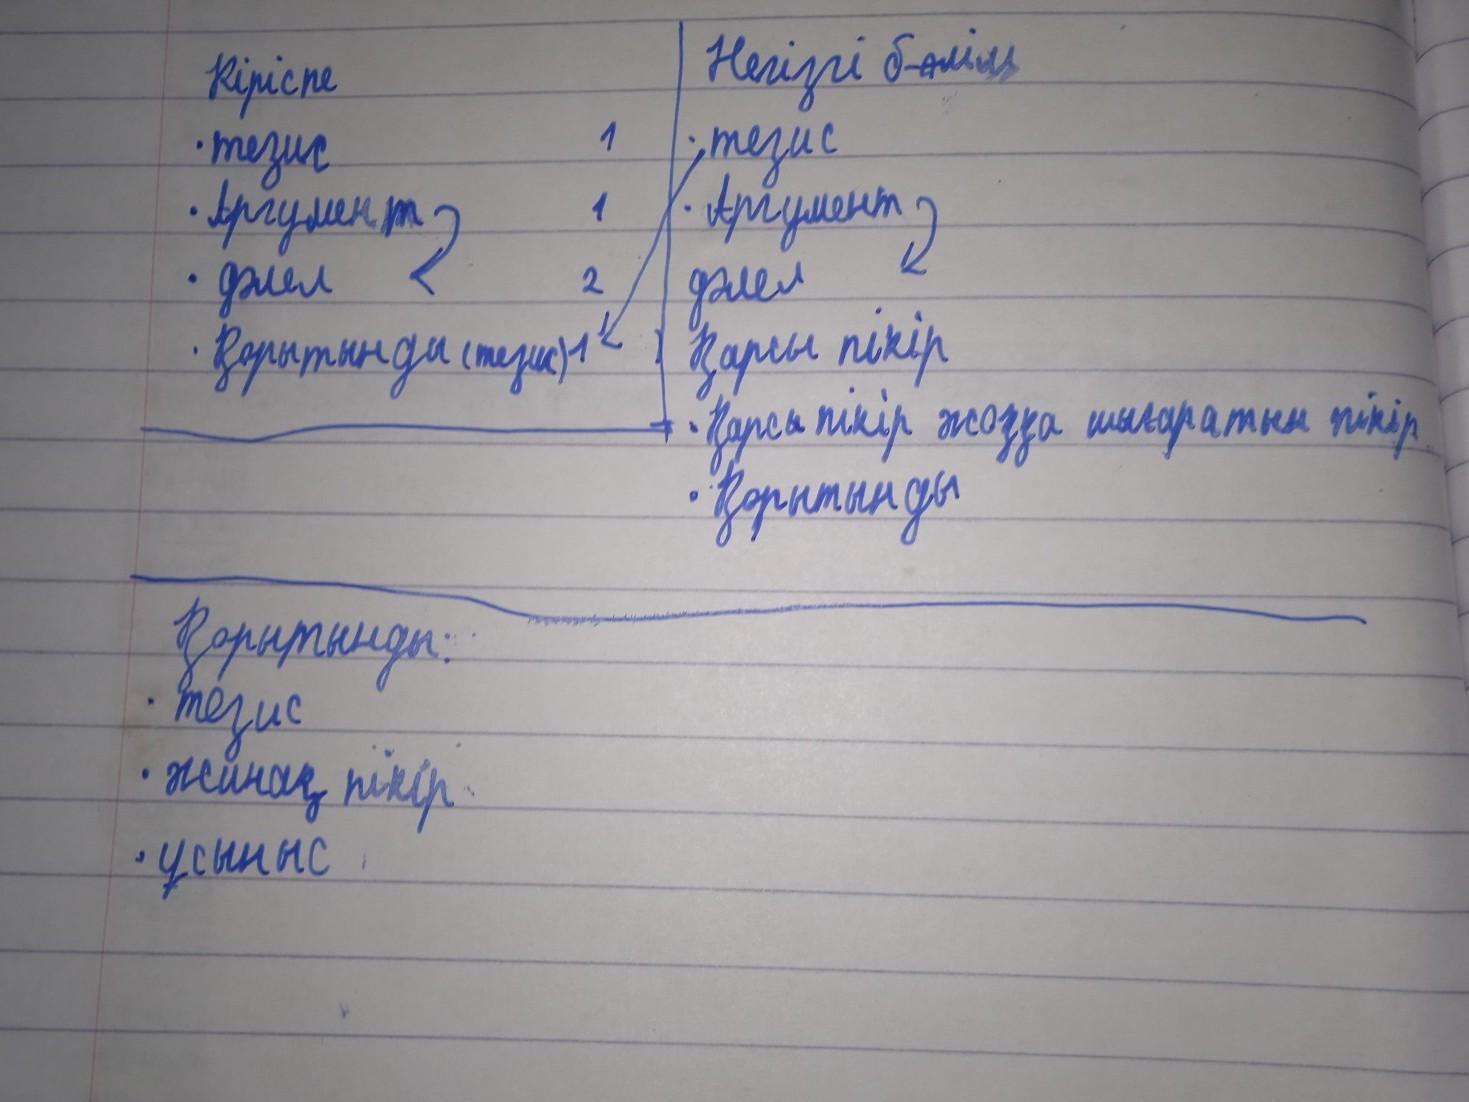 Кіріспе
· тезис 1
· Аргумент 1
· дәлел 2
· Қорытынды (тезис) 1
Негізгі бөлім
· тезис
· Аргумент
дәлел
Қарсы пікір
· Қарсы пікір жоққа шығаратын пікір
· Қорытынды
Қорытынды:
· тезис
· жинақ пікір
· ұсыныс